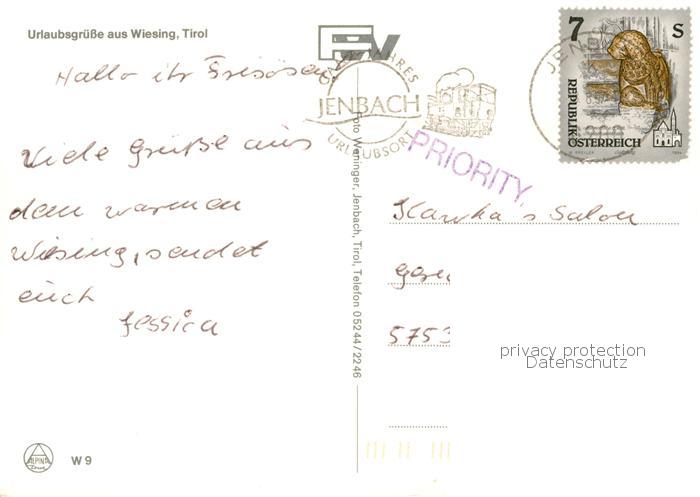 Urlaubsgrüße aus Wiesing, Tirol
Hallo ihr Frisösen
Viele Grüße aus
dem warmen
Wiesing, sendet
euch
Jessica
ALPINA
W 9
Foto Weninger, Jenbach, Tirol, Telefon 05244/2246
JENBACH
URLAUBSORT
PRIORITY
7 S
REPUBLIK
ÖSTERREICH
Salon
5753
privacy protection
Datenschutz